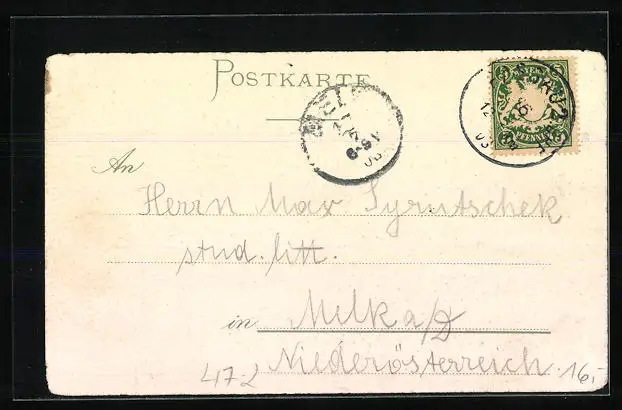 POSTKARTE
MELK
An
Herrn Max Syrutschek
stud. litt.
in Melk a/D
Niederösterreich.
417-2
16,-